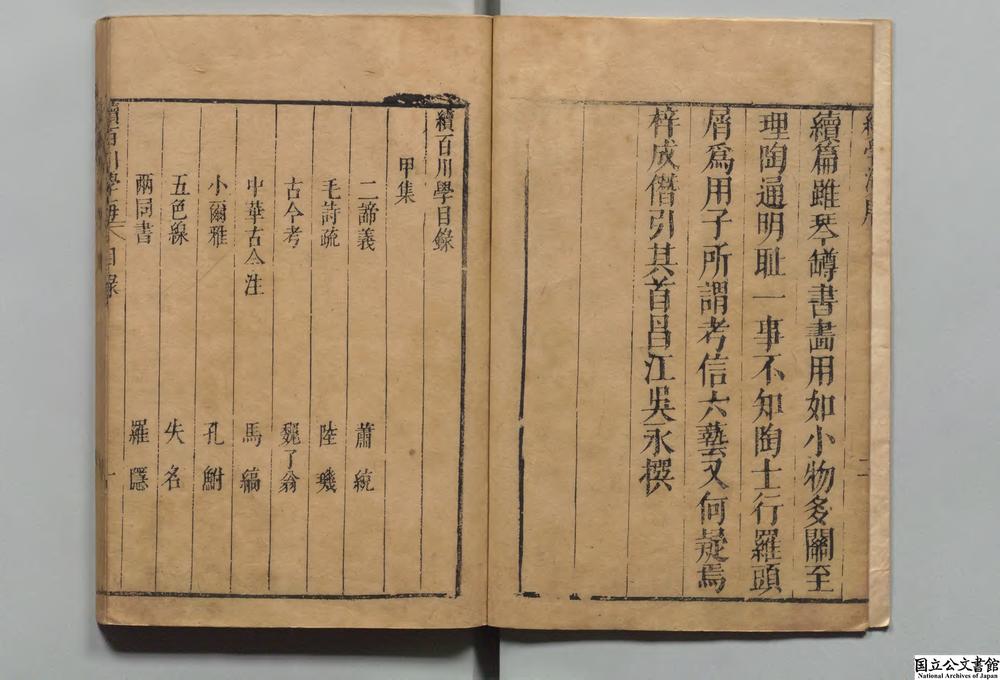 續篇雖琴罇書畵用如小物多關至
理陶通明耻一事不知陶士行羅頭
屑爲用子所謂考信六藝又何疑焉
梓成僭引其首昌江吳永撰
二
續百川學目錄
甲集
二諦義 蕭統
毛詩疏 陸璣
古今考 魏了翁
中華古今注 馬縞
小爾雅 孔鮒
五色線 失名
兩同書 羅隱
續百川學海 目錄 一
国立公文書館
National Archives of Japan